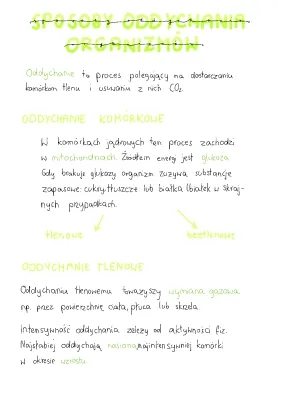 SPOSOBY ODDYCHANIA
ORGANIZMÓW
Oddychanie to proces polegający na dostarczaniu
komórkom tlenu i usuwaniu z nich CO₂.
ODDYCHANIE KOMÓRKOWE
W komórkach jądrowych ten proces zachodzi
w mitochondriach. Źródłem energi jest glukoza
Gdy brakuje glukozy organizm zużywa substancje
zapasowe: cukry, tłuszcze lub białka (białek w skraj-
nych przypadkach.
tlenowe beztlenowe
ODDYCHANIE TLENOWE
Oddychaniu tlenowemu towarzyszy wymiana gazowa
np. przez powierzchnię ciała, płuca lub skrzela.
Intensywność oddychania zależy od aktywności fiz.
Najsłabiej oddychają nasiona, najintensywniej komórki
w okresie wzrostu.